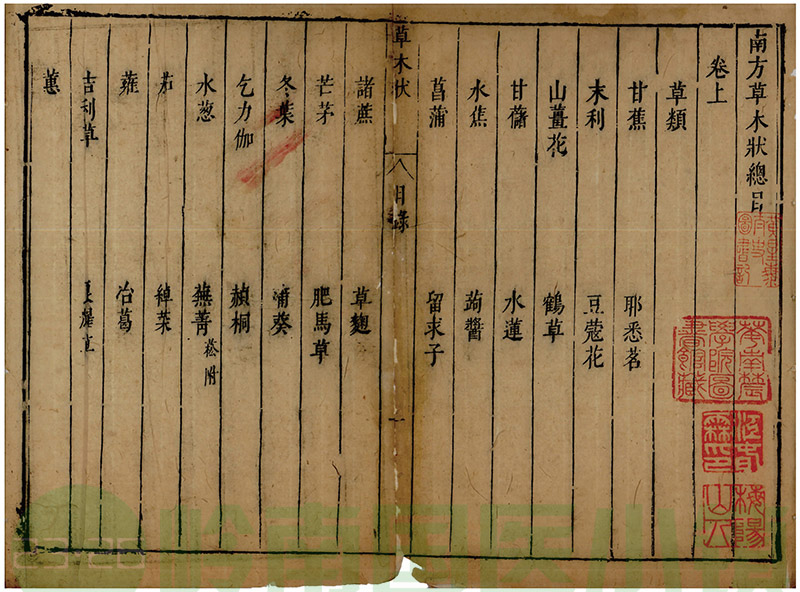 南方草木狀總目
卷上
草類
甘蕉 耶悉茗
末利 豆蔻花
山薑花 鶴草
甘藷 水蓮
水蕉 蒟醬
菖蒲 留求子
草木狀 目錄 一
諸蔗 草麴
芒茅 肥馬草
冬葉 蒲葵
乞力伽 赬桐
水葱 蕪菁 菘附
茄 綽菜
蕹 冶葛
吉利草
蕙
華南農學院圖書館藏